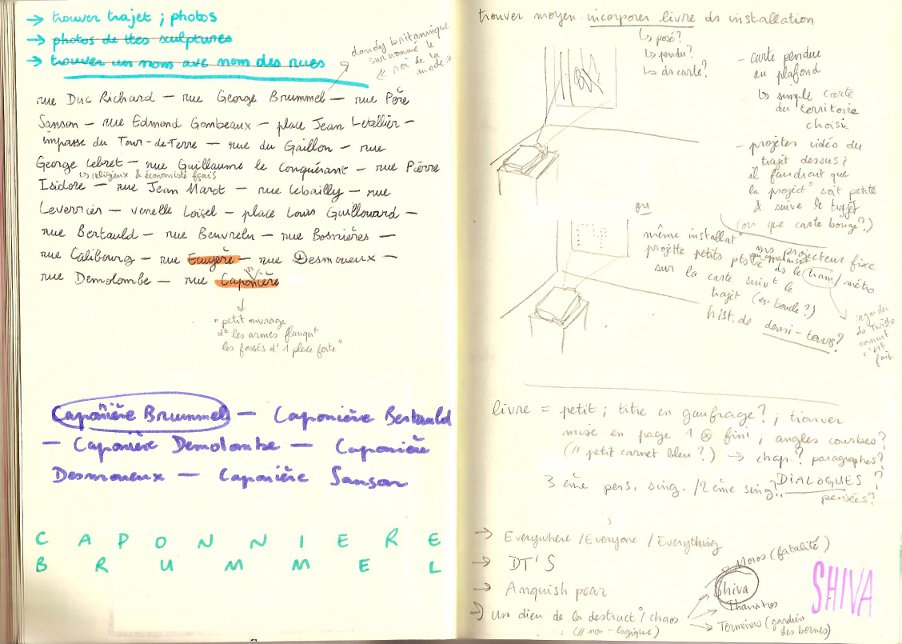 → trouver trajet ; photos
→ photos de ttes sculptures
→ trouver un nom avec nom des rues
dandy britannique
surnommé le
"roi de la
mode"
rue Duc Richard — rue George Brummel — rue Père
Sanson — rue Edmond Gombeaux — place Jean Letellier —
impasse du Tour-de-Terre — rue du Gaillon — rue
George Lebret — rue Guillaume le Conquérant — rue Pierre
↳ religieux & économiste frçais
Isidore — rue Jean Marot — rue Lebailly — rue
Leverrier — venelle Loisel — place Louis Guillouard —
rue Bertauld — rue Beuvrelu — rue Bosnières —
rue Calibourg — rue Ecuyère — rue Desmoueux —
rue Demolombe — rue Caponière
"petit ouvrage
dt les armes flanqut
les fossés d'1 place forte"
Caponnière Brummel — Caponière Bertauld
— Caponière Demolombe — Caponière
Desmoueux — Caponière Sanson
C A P O N N I E R E
B R U M M E L
trouver moyen incorporer livre ds installation
↳ posé?
↳ pendu?
↳ ds carte?
- carte pendue
au plafond
↳ simple carte
du territoire
choisi
- projeter vidéo du
trajet dessus?
il faudrait que
la project° soit petite
& suive le trajet
(ou que carte bouge?)
ou
même installat°
ms projecteur fixe
projette petits pts
ds le (tram)/métro
sur la carte suivt le
trajet (en boucle?)
hist. de demi-tours?
livre = petit ; titre en gaufrage? ; trouver
mise en page 1 fini ; angles courbes?
(// petit carnet bleu?) → chap.? paragraphes?
3 ème pers. sing. / 2ème sing? DIALOGUES?
pensées?
→ Everywhere / Everyone / Everything
→ DT'S
→ Anguish pear
→ un dieu de la destruct° / chaos
(// non-logique)
Moros (fatalité)
Shiva
Thanatos
Terminus (gardien
des bornes)
SHIVA